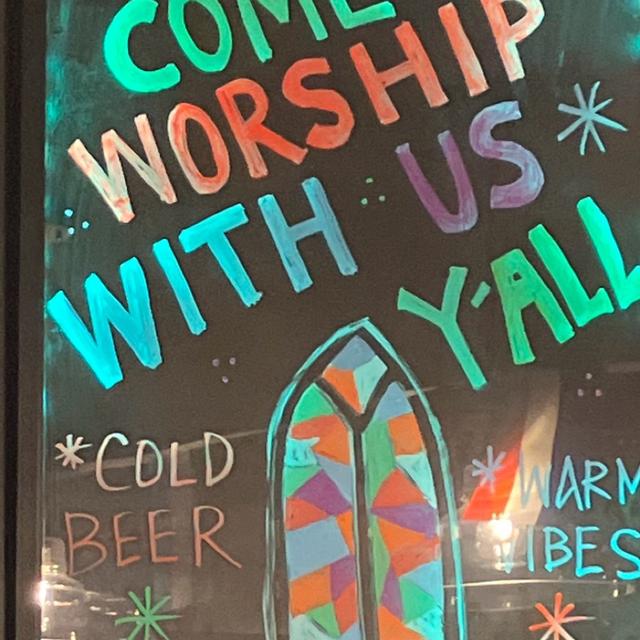 COME
WORSHIP
WITH US
Y'ALL
*COLD
BEER
*WARM
VIBES